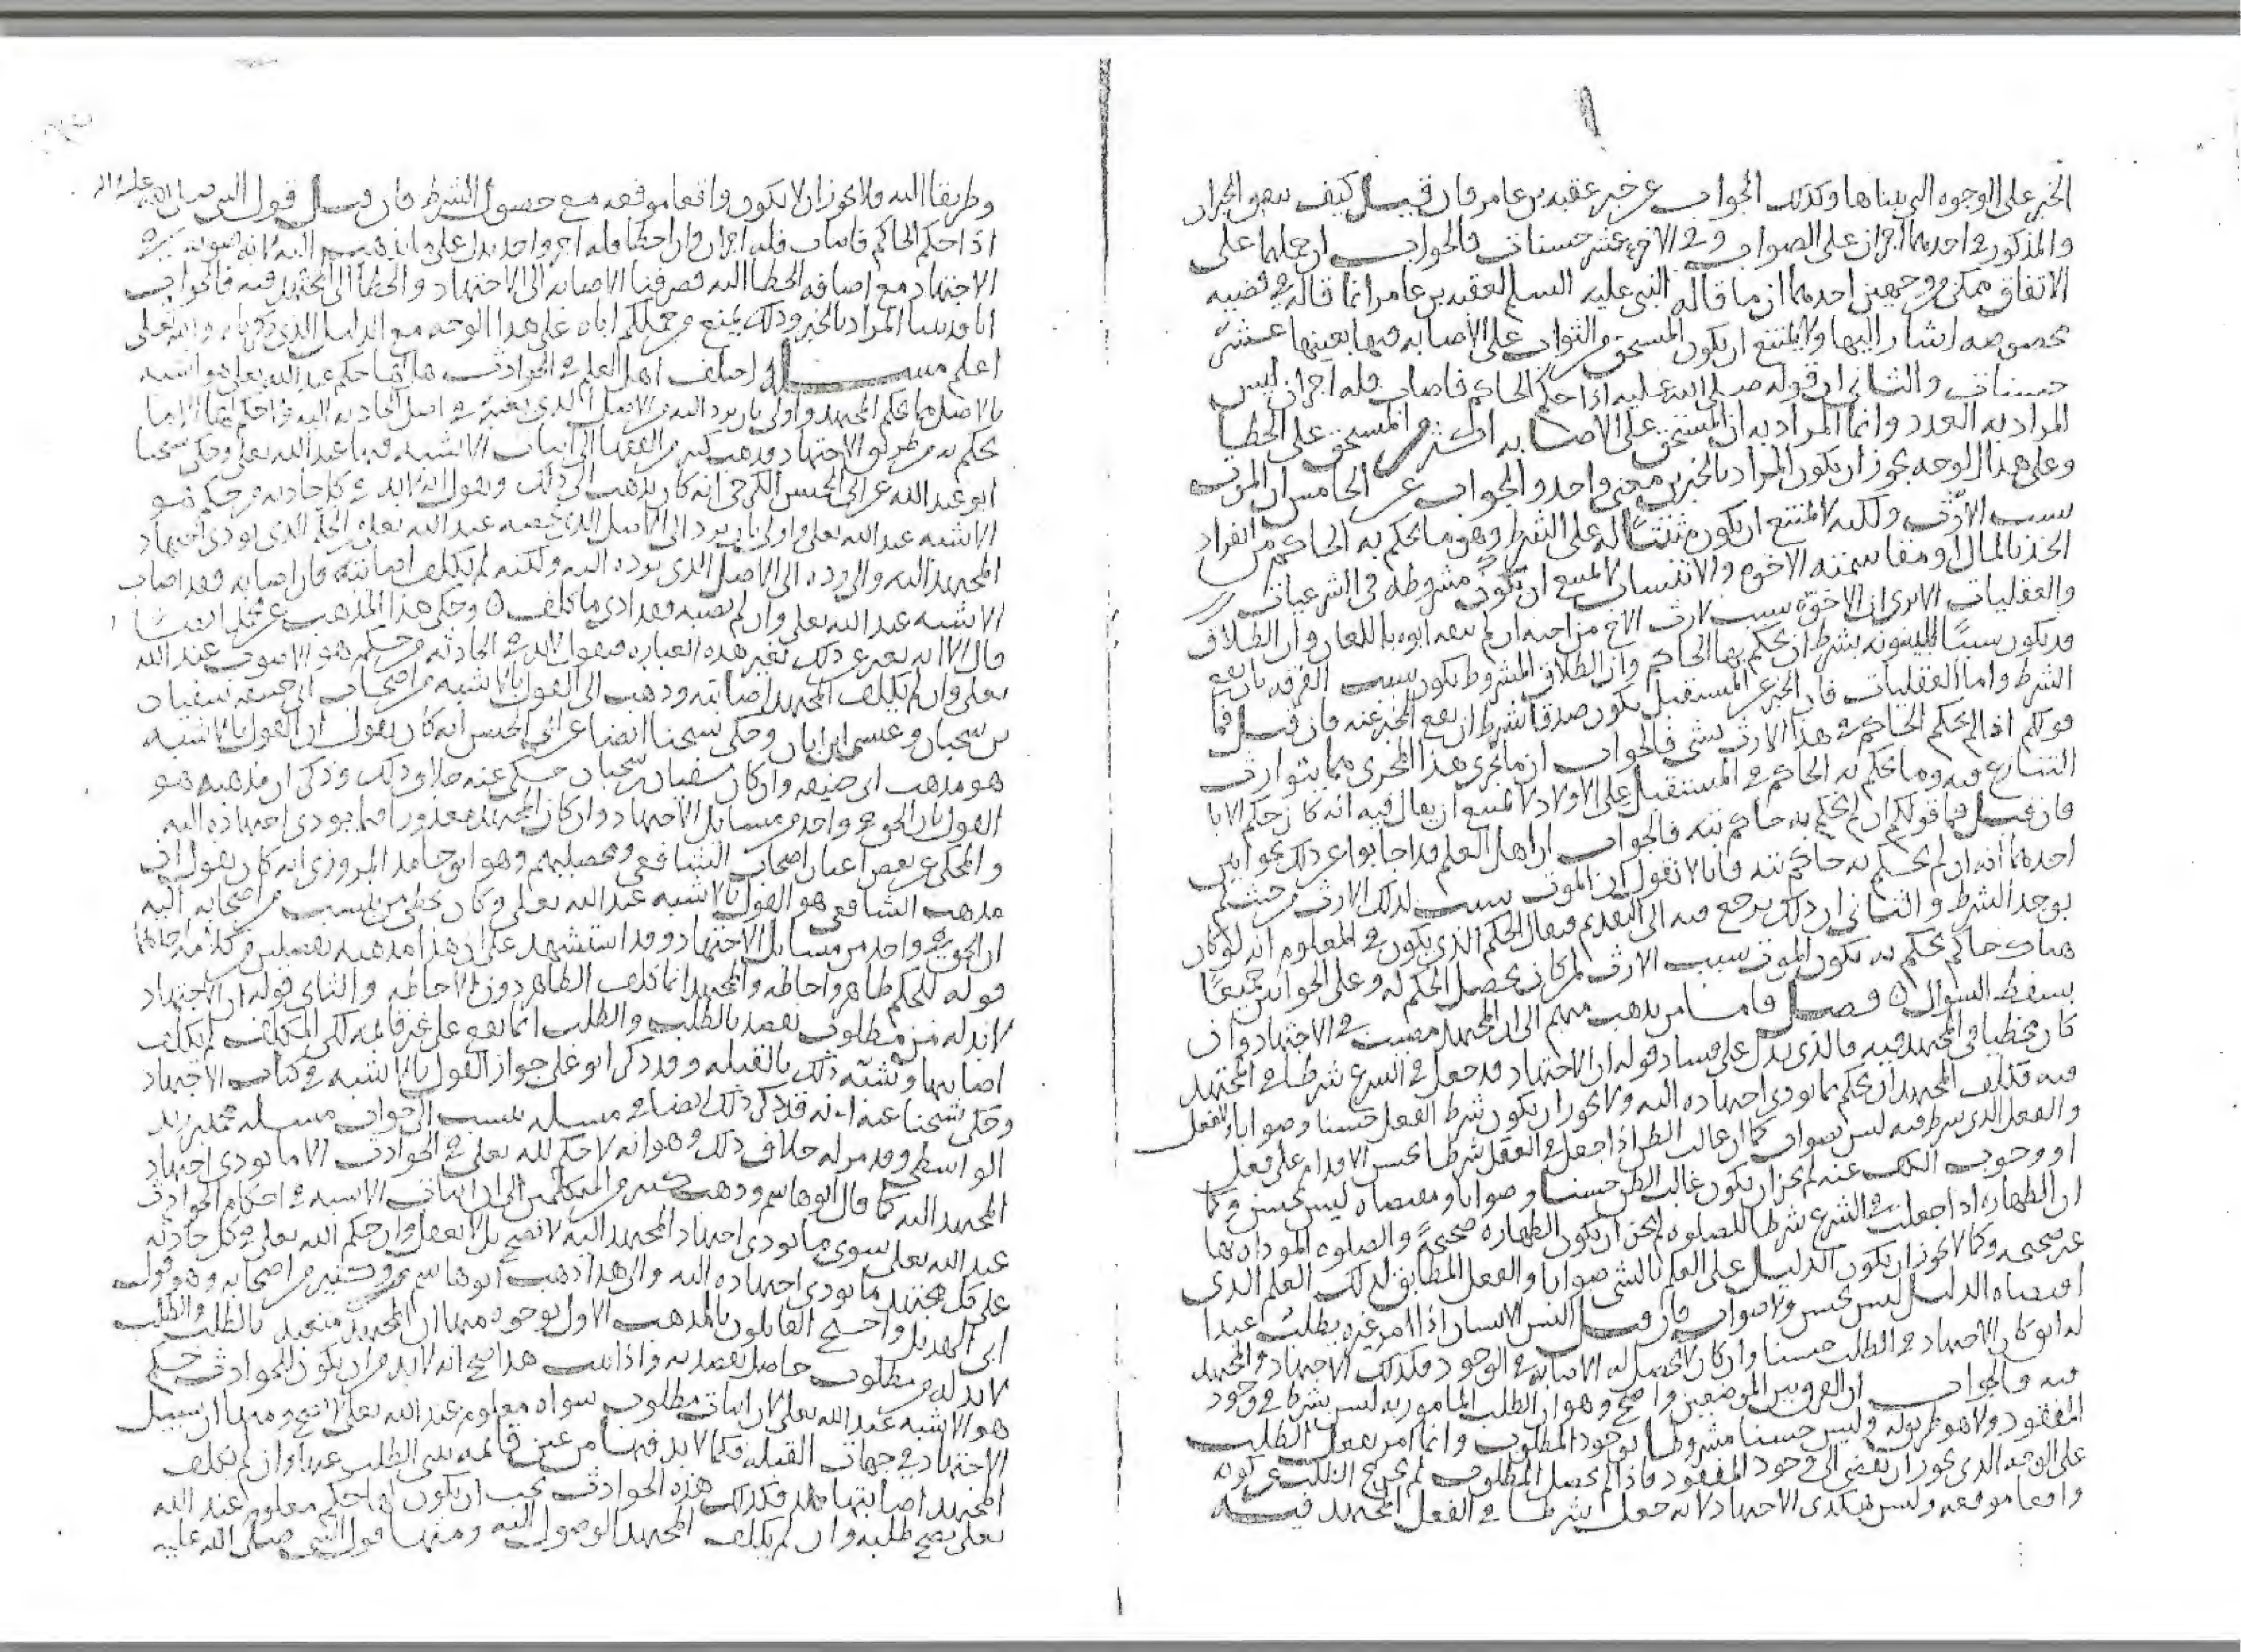 الخبر على الوجوه التي بيناها وكذلك الجواب عن خبر عقبه بن عامر فان قيل كيف يتفق الخبران
والمذكور في احدهما اجران على الصواب وفي الاخر عشر حسنات فالجواب ان حملهما على
الاتفاق ممكن من وجهين احدهما ان ما قاله النبي عليه السلم لعقبه بن عامر انما قاله في قضيه
مخصوصه اشار اليها ولا يمتنع ان يكون المستحق من الثواب على الاصابه فيها بعينها عشر
حسنات والثاني ان قوله صلى الله عليه اذا حكم الحاكم فاصاب فله اجران ليس
المراد به العدد وانما المراد به ان المستحق على الاصابه اكثر من المستحق على الخطا
وعلى هذا الوجه يجوز ان يكون المراد بالخبرين معنى واحد والجواب عن الخامس ان الموت
سبب الارث ولكنه لا يمتنع ان يكون مثبتا له على الشرط وهو ما يحكم به الحاكم من انفراد
الجد بالمال او مقاسمته الاخوه والاسباب لا يمتنع ان تكون مشروطه في الشرعيات
والعقليات الا ترى ان الاخوه سبب لارث الاخ من اخيه ان لم ينفه ابوه باللعان وان الطلاق
قد يكون سببا للبينونه بشرط ان يحكم بها الحاكم وان الطلاق المشروط يكون سبب الفرقه بان يقع
الشرط واما العقليات فان الخبر عن المستقبل يكون صدقا بشرط ان يقع المخبر عنه فان قيل فما
قولكم اذا لم يحكم الحاكم في هذا الارث بشي فالجواب ان ما يجري هذا المجرى مما يتوارث
التنازع فيه وما يحكم به الحاكم في المستقبل على الاولاد لا يمتنع ان يقال فيه انه كان حكم الابا
فان قيل فما قولكم ان لم يحكم به حاكم بته فالجواب ان اهل العلم قد اجابوا عن ذلك بجوابين
احدهما انه ان لم يحكم به حاكم بته فانا لا نقول ان الموت سبب لذلك الارث من حيث لم
يوجد الشرط والثاني ان ذلك يرجع فيه الى التقدير فيقال الحكم الذي يكون في المعلوم انه لو كان
هناك حاكم يحكم به يكون الموت سبب الارث لمن كان يحصل الحكم له وعلى الجوابين جميعا
يسقط السوال فصل فاما من يذهب منهم الى ان المجتهد مصيب في الاجتهاد وان
كان مخطيا في المجتهد فيه فالذي يدل على فساد قوله ان الاجتهاد قد جعل في الشرع شرطا في المجتهد
فيه فكلف المجتهد ان يحكم بما يودي اجتهاده اليه ولا يجوز ان يكون شرط الفعل حسنا وصوابا والفعل
والفعل الذي شرط فيه ليس بصواب كما ان غالب الظن اذا جعل في العقل شرطا يحسن الاقدام على فعل
او وجوب الكف عنه لم يجز ان يكون غالب الظن حسنا وصوابا ومقتضاه ليس بحسن وكما
ان الطهاره اذا جعلت في الشرع شرطا للصلوه لم يجز ان يكون الطهاره صحيحة والصلوه المؤداه بها
غير صحيحه وكما لا يجوز ان يكون الدليل على العلم بالشي صوابا والفعل المطابق لذلك العلم الذي
اقتضاه الدليل ليس بحسن ولا صواب فان قيل اليس الانسان اذا امر غيره بطلب اعبدا
له ابق كان الاجتهاد في الطلب حسنا وان كان لا يحصل له الاصابه في الوجود فكذلك الاجتهاد والمجتهد
فيه والجواب ان الفرق بين الموضعين واضح وهو ان الطلب المامور به ليس بشرط في وجود
المفقود ولا هو طريق له وليس حسنا مشروطا بوجود المطلوب وانما امر بفعل الطلب
على الوجه الذي يجوز ان يفضي الى وجود المفقود فاذا لم يحصل المطلوب لم يخرج الطلب عن كونه
واقعا موقعه وليس هكذى الاجتهاد لانه جعل شرطا في الفعل المجتهد فيه
وطريقا اليه ولا يجوز ان لا يكون واقعا موقعه مع حصول الشرط فان قيل قول النبي صلى الله عليه
اذا حكم الحاكم فاصاب فله اجران وان اخطا فله اجر واحد يدل على ما نذهب اليه لانه صوبه في
الاجتهاد مع اضافه الخطا اليه فصرفنا الاصابه الى الاجتهاد والخطا الى المجتهد فيه فالجواب
انا قد بينا المراد بالخبر وذلك يمنع من حملكم اياه على هذا الوجه مع الدليل الذي ذكرناه والله تعالى
اعلم مسلة اختلف اهل العلم في الحوادث هل فيها حكم عند الله تعالى هو اشبه
بالاصل مما يحكم المجتهد واولى بان يرد اليه من الاصل الذي يعتبره في اصل الحادثه اليه
يحكم به من طريق الاجتهاد فذهب كثير من الفقها الى اثبات الاشبه فيها عند الله تعالى وحكى شيخنا
ابو عبد الله عن ابي الحسن الكرخي انه كان يذهب الى ذلك ويقول انه لا بد في كل حادثه من حكم هو
الاشبه عند الله تعالى واولى بان يرد الى الاصل الذي يخصه عند الله تعالى من الحكم الذي يودي اجتهاد
المجتهد اليه والى رده الى الاصل الذي يرده اليه ولكنه لم يكلف اصابته فان اصابه فقد اصاب
الاشبه عند الله تعالى وان لم يصبه فقد ادى ما كلف وحكى هذا المذهب عن محمد ايضا
قال الا انه يعبر عن ذلك بغير هذه العباره فيقول لا بد في الحادثه من حكم هو الاصوب عند الله
تعالى وان لم يكلف المجتهد اصابته وذهب الى القول بالاشبه من اصحاب ابي حنيفه سفيان
بن سحبان وعيسى ابن ابان وحكى شيخنا ايضا عن ابي الحسن انه كان يقول ان القول بالاشبه
هو مذهب ابي حنيفه وان كان سفيان بن سحبان حكى عنه خلاف ذلك وذكر ان مذهبه هو
القول بان الحق في واحد من مسائل الاجتهاد وان كان المجتهد معذورا فيما يودي اجتهاده اليه
والمحكي عن بعض اعيان اصحاب الشافعي ومحصليهم وهو ابو حامد المروزي انه كان يقول ان
مذهب الشافعي هو القول بالاشبه عند الله تعالى وكان يخطي من ينسب من اصحابه اليه
ان الحق في واحد من مسائل الاجتهاد وقد استشهد على ان هذا مذهبه بفصلين من كلامه احدهما
قوله للحكم ظاهر واحاطه والمجتهد انما كلف الظاهر دون الاحاطه والثاني قوله ان الاجتهاد
لا بد له من مطلوب يقصد بالطلب والطلب انما يقع على عين قائمه لكن المكلف لم يكلف
اصابتها وشبه ذلك بالقبله وقد ذكر ابو علي جواز القول بالاشبه في كتاب الاجتهاد
وحكى شيخنا عنه انه قد ذكر ذلك ايضا في مسله ينسب الى جواب مسله محمد بن زيد
الواسطي وقد مر له خلاف ذلك وهو انه لا حكم لله تعالى في الحوادث الا ما يودي اجتهاد
المجتهد اليه كما قال ابو هاشم وذهب كثير من المتكلمين الى ان اثبات الاشبه في احكام الحوادث
عند الله تعالى سوى ما يودي اجتهاد المجتهد اليه لا يصح بل لا يعقل وان حكم الله تعالى في كل حادثه
على كل مجتهد ما يودي اجتهاده اليه والى هذا ذهب ابو هاشم وكثير من اصحابه وهو قول
ابي الهذيل واحتج القايلون بالمذهب الاول بوجوه منها ان المجتهد متعبد بالطلب والطلب
لا بد له من مطلوب حاصل يقصد به واذا ثبت هذا صح انه لا بد من ان يكون للحوادث حكم
هو الاشبه عند الله تعالى لان اثبات مطلوب سواه معلوم عند الله تعالى لا يصح ومنها ان سبيل
الاجتهاد في جهات القبله فكما لا بد فيها من عين قائمه يبتنى الطلب عليها وان لم يكلف
المجتهد اصابتها فكذلك هذه الحوادث يجب ان يكون لها حكم معلوم عند الله
تعالى يصح طلبه وان لم يكلف المجتهد الوصول اليه ومنها قول النبي صلى الله عليه